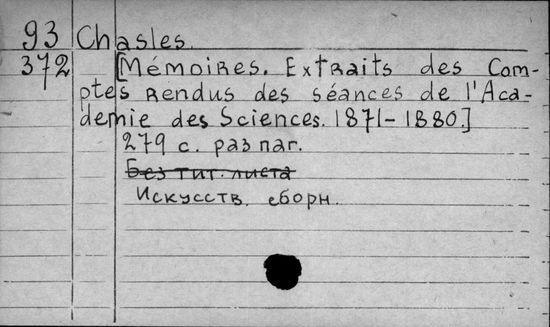 93 Chasles.
372 [Mémoires. Extraits des Com-
ptes Rendus des séances de l'Aca-
démie des Sciences. 1871-1880.]
279 с. раз паг.
Без тит. листа
Искусств. сборн.